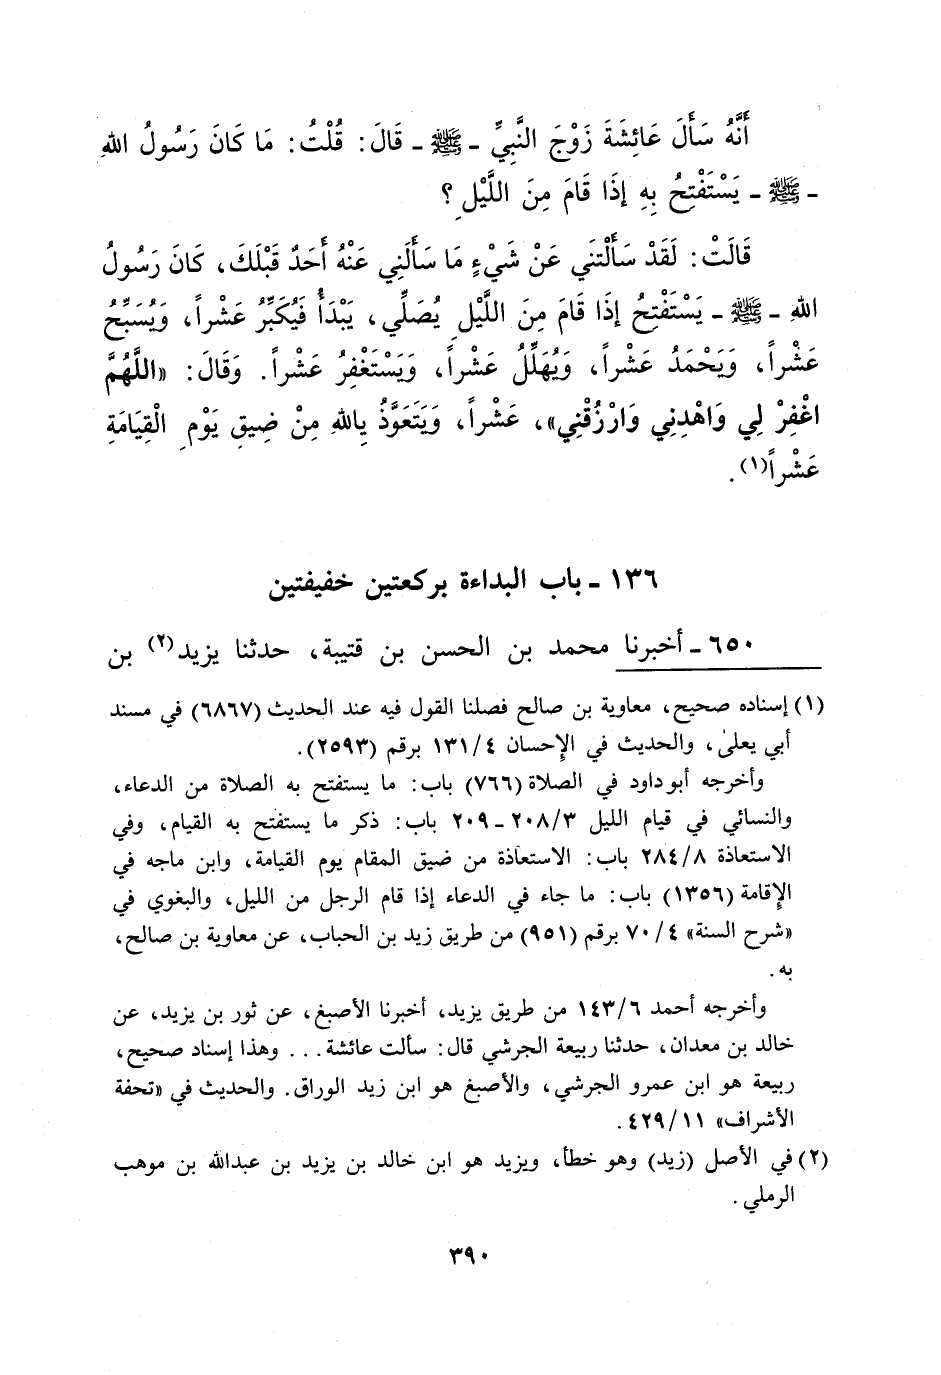 أَنَّهُ سَأَلَ عَائِشَةَ زَوْجَ النَّبِيِّ ـ ﷺ ـ قَالَ: قُلْتُ: مَا كَانَ رَسُولُ اللهِ
ـ ﷺ ـ يَسْتَفْتِحُ بِهِ إِذَا قَامَ مِنَ اللَّيْلِ؟
قَالَتْ: لَقَدْ سَأَلْتَنِي عَنْ شَيْءٍ مَا سَأَلَنِي عَنْهُ أَحَدٌ قَبْلَكَ، كَانَ رَسُولُ
اللهِ ـ ﷺ ـ يَسْتَفْتِحُ إِذَا قَامَ مِنَ اللَّيْلِ يُصَلِّي، يَبْدَأُ فَيُكَبِّرُ عَشْراً، وَيُسَبِّحُ
عَشْراً، وَيَحْمَدُ عَشْراً، وَيُهَلِّلُ عَشْراً، وَيَسْتَغْفِرُ عَشْراً. وَقَالَ: «اللَّهُمَّ
اغْفِرْ لِي وَاهْدِنِي وَارْزُقْنِي»، عَشْراً، وَيَتَعَوَّذُ بِاللهِ مِنْ ضِيقِ يَوْمِ الْقِيَامَةِ
عَشْراً(١).
١٣٦ ـ باب البداءة بركعتين خفيفتين
٦٥٠ ـ أخبرنا محمد بن الحسن بن قتيبة، حدثنا يزيد(٢) بن
(١) إسناده صحيح، معاوية بن صالح فصلنا القول فيه عند الحديث (٦٨٦٧) في مسند
أبي يعلىٰ، والحديث في الإحسان ١٣١/٤ برقم (٢٥٩٣).
وأخرجه أبو داود في الصلاة (٧٦٦) باب: ما يستفتح به الصلاة من الدعاء،
والنسائي في قيام الليل ٢٠٨/٣ ـ ٢٠٩ باب: ذكر ما يستفتح به القيام، وفي
الاستعاذة ٢٨٤/٨ باب: الاستعاذة من ضيق المقام يوم القيامة، وابن ماجه في
الإقامة (١٣٥٦) باب: ما جاء في الدعاء إذا قام الرجل من الليل، والبغوي في
«شرح السنة» ٧٠/٤ برقم (٩٥١) من طريق زيد بن الحباب، عن معاوية بن صالح،
به.
وأخرجه أحمد ١٤٣/٦ من طريق يزيد، أخبرنا الأصبغ، عن ثور بن يزيد، عن
خالد بن معدان، حدثنا ربيعة الجرشي قال: سألت عائشة... وهذا إسناد صحيح،
ربيعة هو ابن عمرو الجرشي، والأصبغ هو ابن زيد الوراق. والحديث في «تحفة
الأشراف» ٤٢٩/١١.
(٢) في الأصل (زيد) وهو خطأ، ويزيد هو ابن خالد بن يزيد بن عبدالله بن موهب
الرملي.
٣٩٠